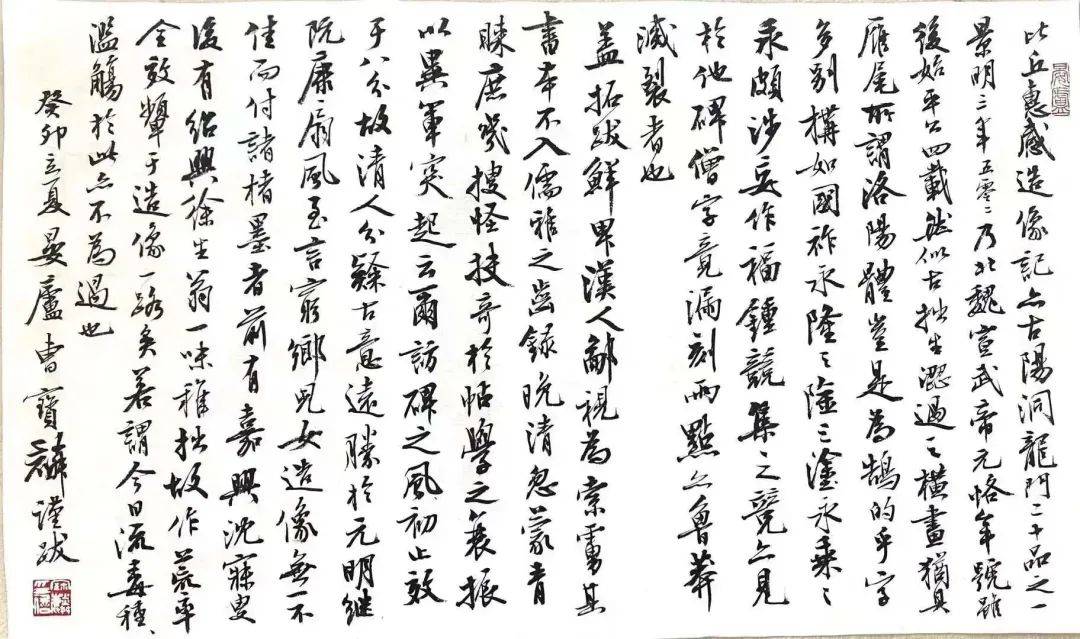 比丘惠感造像記亦古陽洞龍門二十品之一
景明三年五零二乃北魏宣武帝元恪年號雖
後始平公四載然似古拙生澀過之橫畫猶具
雁尾所謂洛陽體豈是為鵠的乎字
多別構如國祚永隆之隆三塗永乘之
永頗涉妄作福鍾競集之競亦見
於他碑僧字竟漏刻兩點亦魯莽
滅裂者也
蓋拓跋鮮卑漢人鄙視為索虜其
書本不入儒雅之齒錄晚清忽蒙青
睞庶幾搜怪技奇於帖學之衰振
以異軍突起云爾訪碑之風初止效
于八分故清人分隸古意遠勝於元明繼
阮康扇風至言窮鄉兒女造像無不
佳而付諸楮墨者前有嘉興沈寐叟
後有紹興徐生翁一味稚拙故作荒率
全效顰于造像一路矣若謂今日流毒種、
濫觴於此亦不為過也
癸卯立夏晏廬曹寶麟謹跋